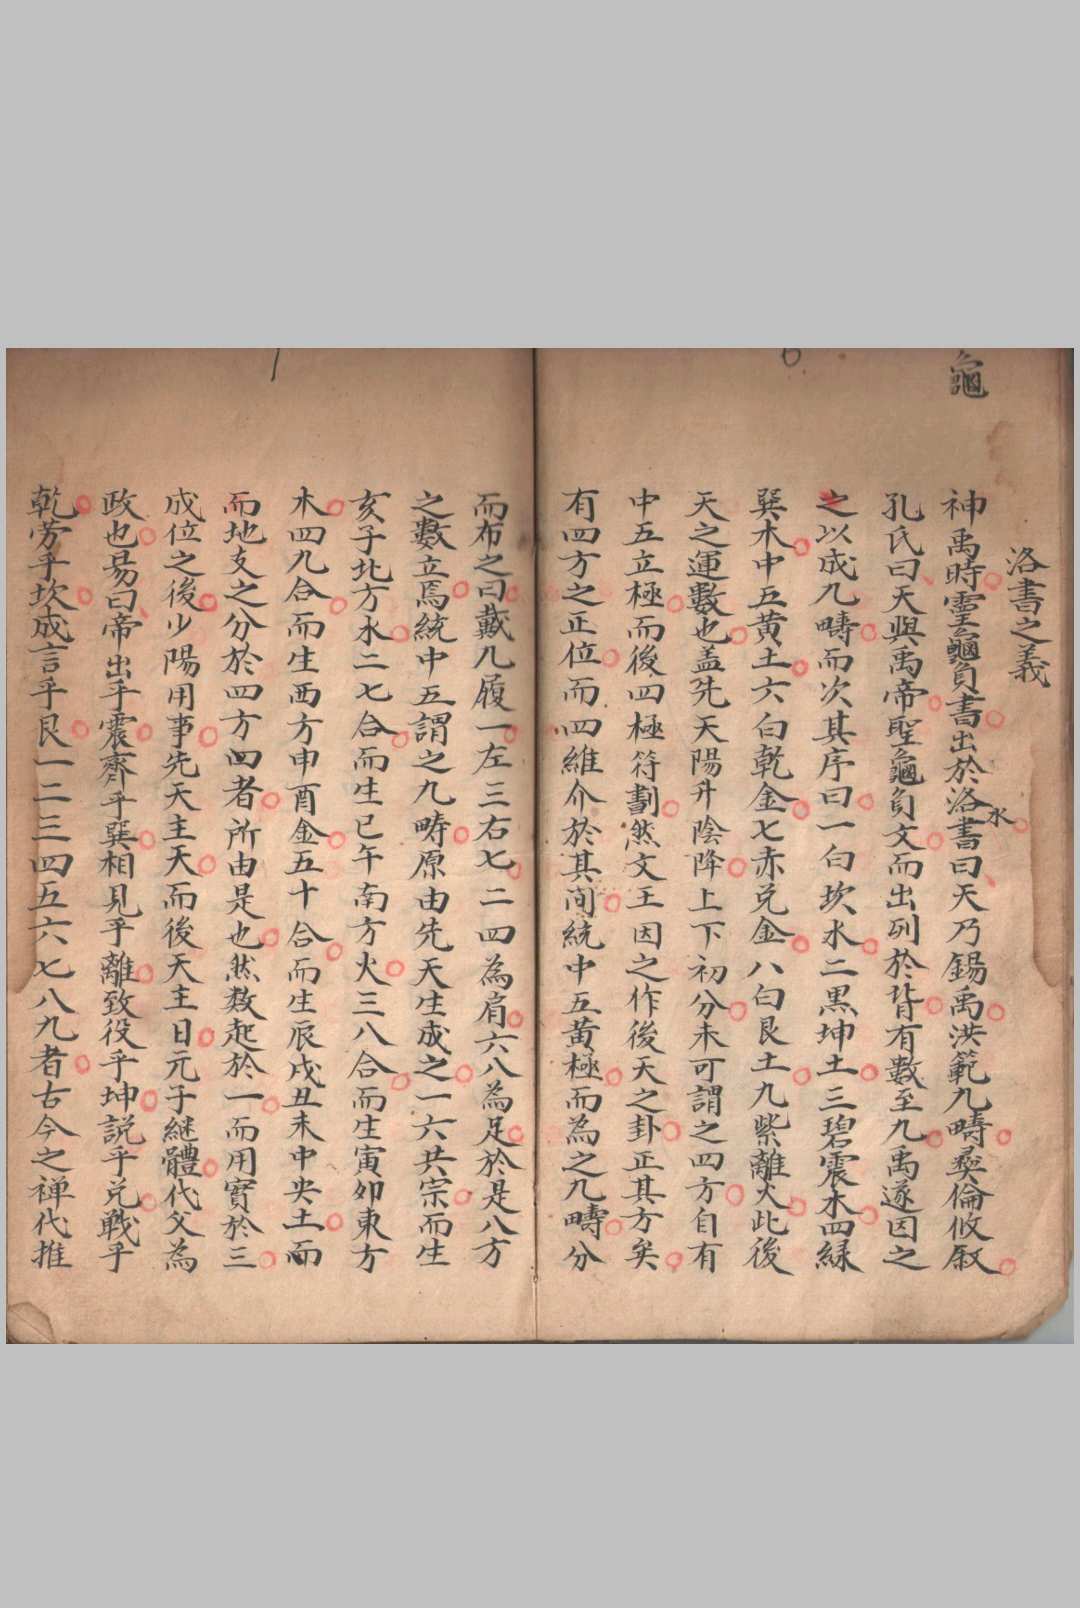 龜
洛書之義
神禹時靈龜負書出於洛水書曰天乃錫禹洪範九疇彝倫攸叙
孔氏曰天與禹帝聖龜負文而出列於背有數至九禹遂因之
之以成九疇而次其序曰一白坎水二黑坤土三碧震木四緑
巽木中五黄土六白乾金七赤兑金八白艮土九紫離火此後
天之運數也盖先天陽升陰降上下初分未可謂之四方自有
中五立極而後四極符劃然文王因之作後天之卦正其方矣
有四方之正位而四維介於其间統中五黄極而為之九疇分
而布之曰戴九履一左三右七二四為肩六八為足於是八方
之數立焉統中五謂之九疇原由先天生成之一六共宗而生
亥子北方水二七合而生巳午南方火三八合而生寅卯東方
木四九合而生西方申酉金五十合而生辰戌丑未中央土而
而地支之分於四方四者所由是也然数起於一而用實於三
成位之後少陽用事先天主天而後天主日元子継體代父為
政也易曰帝出乎震齊乎巽相見乎離致役乎坤説乎兑戰乎
乾劳乎坎成言乎艮一二三四五六七八九者古今之禅代推